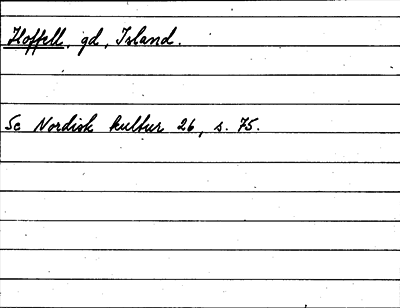 Hoffell, gd, Island.
Se Nordisk kultur 26, s. 75.